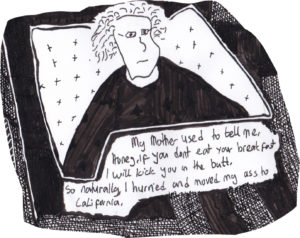 My Mother used to tell me,
honey, if you dont eat your breakfast
I will kick you in the butt.
So naturally I hurried and moved my ass to
California.